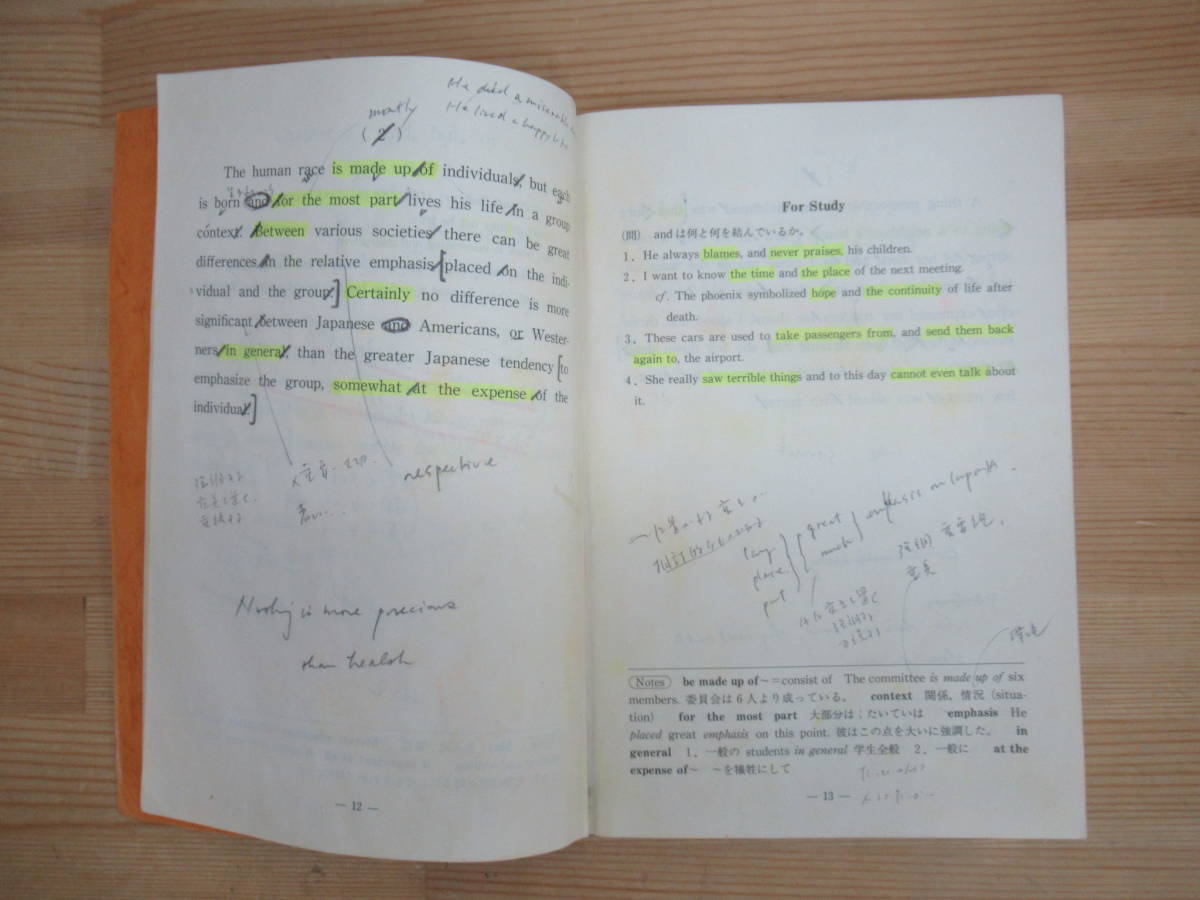 He died a miserable
He lived a happy life
mostly
(2)
The human race is made up of individuals, but each
is born and for the most part lives his life in a group
context. Between various societies there can be great
differences in the relative emphasis placed on the indi-
vidual and the group. Certainly no difference is more
significant between Japanese and Americans, or Wester-
ners in general, than the greater Japanese tendency to
emphasize the group, somewhat at the expense of the
individual.
respective
Nothing is more precious
than health
— 12 —
For Study
(問) andは何と何を結んでいるか。
1. He always blames, and never praises, his children.
2. I want to know the time and the place of the next meeting.
cf. The phoenix symbolized hope and the continuity of life after
death.
3. These cars are used to take passengers from, and send them back
again to, the airport.
4. She really saw terrible things and to this day cannot even talk about
it.
lay
place
put
great
much
emphasis on (upon) A
Notes be made up of~=consist of The committee is made up of six
members. 委員会は6人より成っている。 context 関係, 情況 (situa-
tion) for the most part 大部分は; たいていは emphasis He
placed great emphasis on this point. 彼はこの点を大いに強調した。 in
general 1. 一般の students in general 学生全般 2. 一般に at the
expense of~ ~を犠牲にして
— 13 —